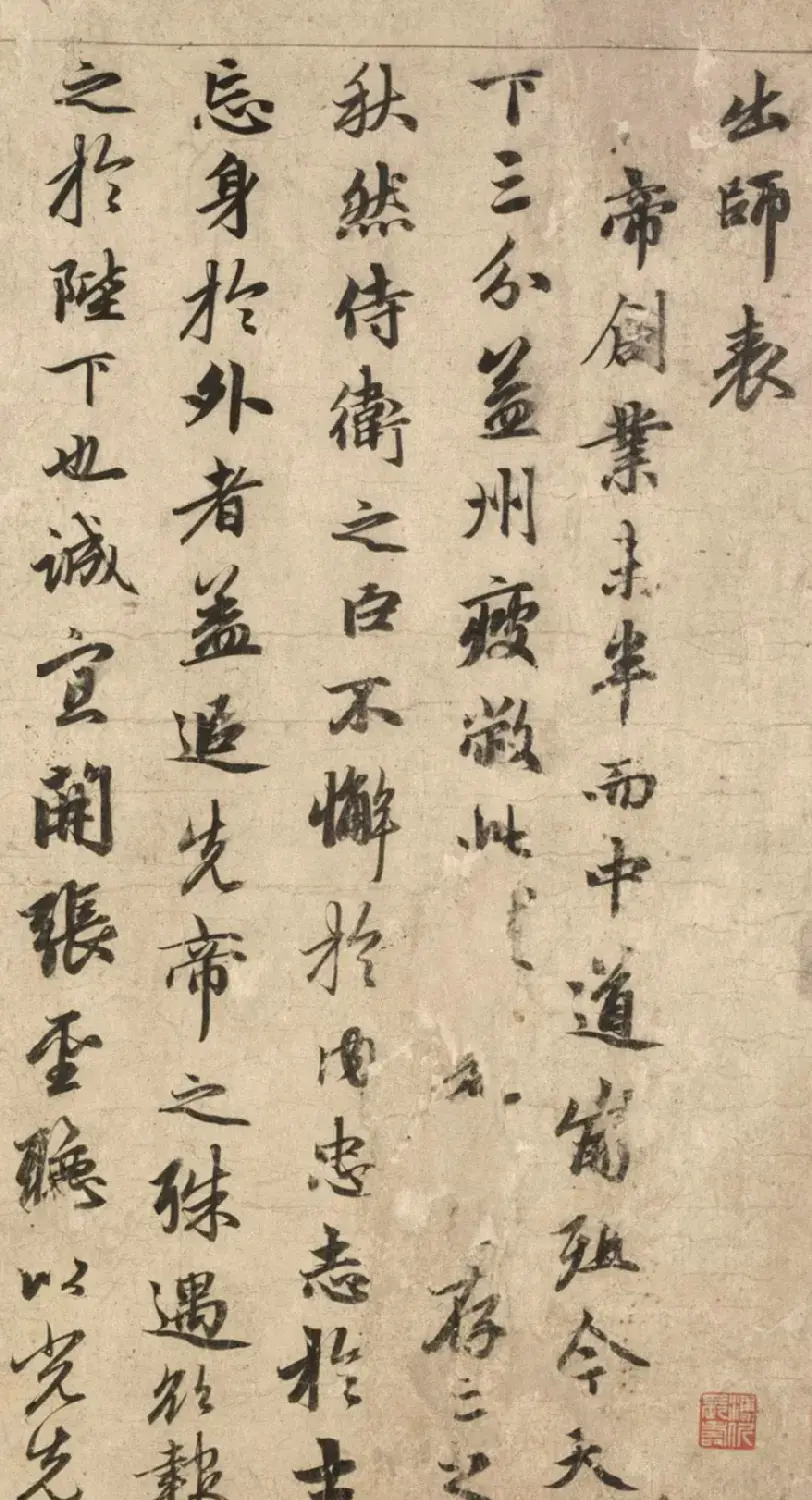 出師表
帝創業未半而中道崩殂今天
下三分益州疲敝此存亡之
秋然侍衛之臣不懈於内忠志於士
忘身於外者盖追先帝之殊遇欲報
之於陛下也誠宜開張聖聽以光先